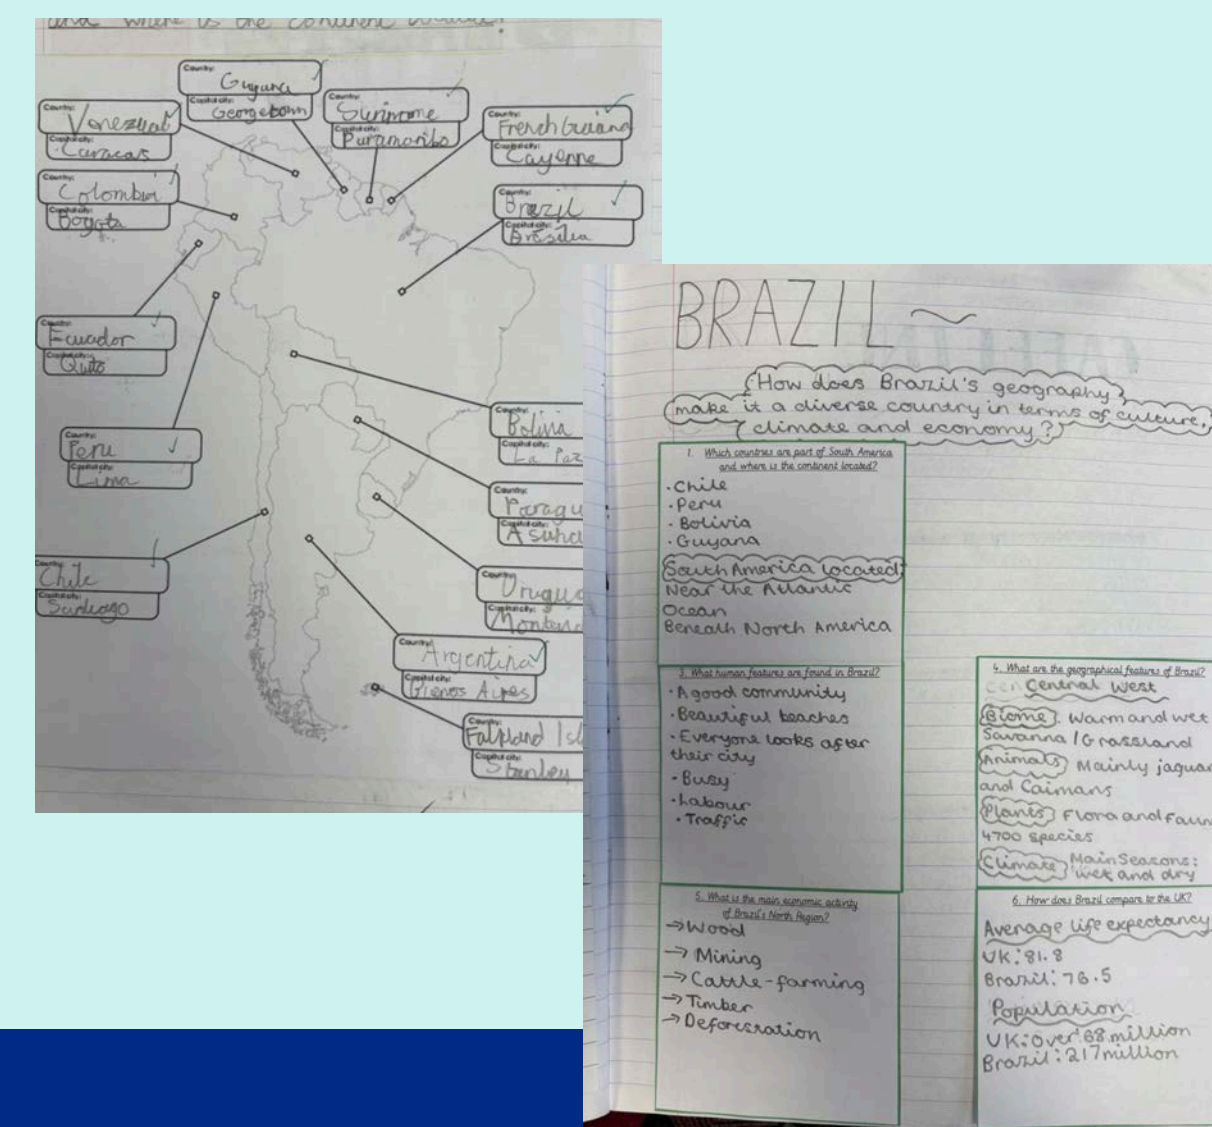 and where is the continent located?
Country:
Guyana
Capital city:
Georgetown
Country:
Suriname
Capital city:
Paramaribo
Country:
French Guiana
Capital city:
Cayenne
Country:
Venezual
Capital city:
Caracas
Country:
Colombia
Capital city:
Bogota
Country:
Brazil
Capital city:
Brasilia
Country:
Ecuador
Capital city:
Quito
Country:
Peru
Capital city:
Lima
Country:
Bolivia
Capital city:
La Paz
Country:
Paragu
Capital city:
Asunc
Country:
Chile
Capital city:
Santiago
Country:
Urugu
Capital city:
Monteve
Country:
Argentina
Capital city:
Buenos Aires
Country:
Falkland Isl
Capital city:
Stanley
BRAZIL
How does Brazil's geography
make it a diverse country in terms of culture,
climate and economy?
1. Which countries are part of South America
and where is the continent located?
• Chile
• Peru
• Bolivia
• Guyana
South America located:
Near the Atlantic
Ocean
Beneath North America
3. What human features are found in Brazil?
• A good community
• Beautiful beaches
• Everyone looks after
their city
• Busy
• Labour
• Traffic
4. What are the geographical features of Brazil?
Central West
Biome: Warm and wet
Savanna / Grassland
Animals Mainly jaguar
and Caimans
Plants Flora and Faun
4700 species
Climate Main Seasons:
wet and dry
5. What is the main economic activity
of Brazil's North Region?
→ Wood
→ Mining
→ Cattle-farming
→ Timber
→ Deforestation
6. How does Brazil compare to the UK?
Average life expectancy
UK: 81.8
Brazil: 76.5
Population
UK: over 68 million
Brazil: 217 million